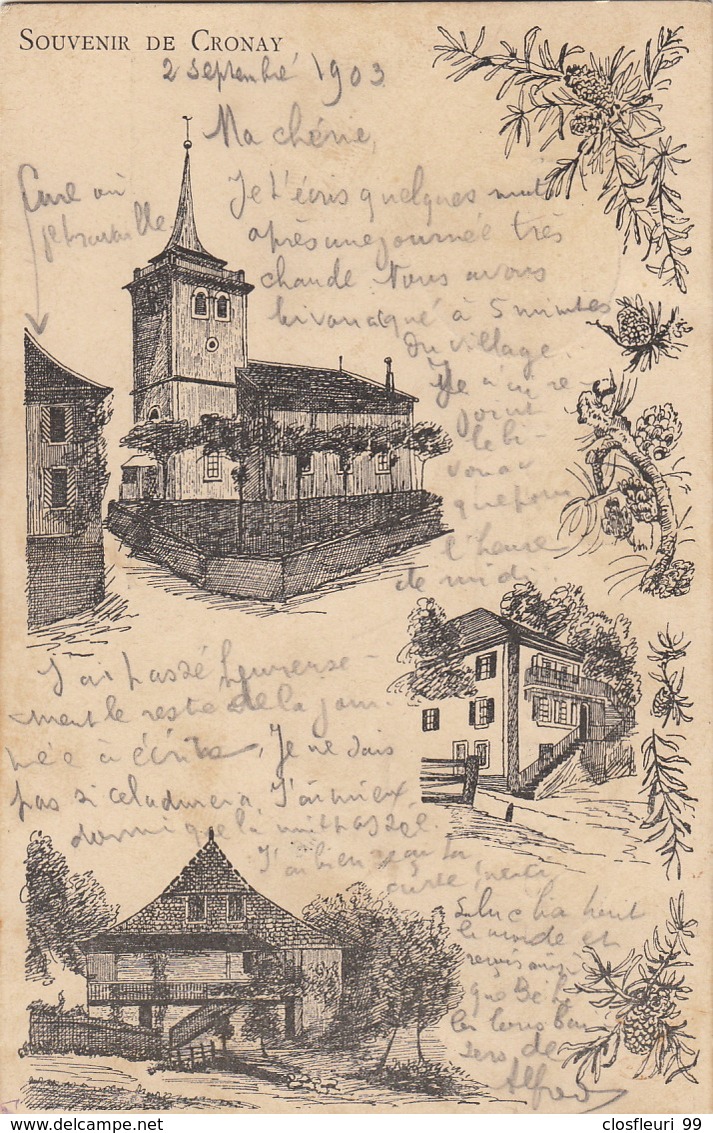 SOUVENIR DE CRONAY
2 Septembre 1903
Ma chérie,
Cure où
je travaille
Je t'écris quelques mots
après une journée très
chaude Nous avons
bivouaqué à 5 minutes
du village.
Je n'ai re-
joint
le bi-
vouac
que pour
l'heure
de midi.
J'ai passé heureuse-
ment le reste de la jour-
née à écrire, Je ne sais
pas si cela durera. J'ai mieux
dormi que la nuit passée.
J'ai bien reçu ta
carte, merci
Salue tout
le monde et
reçois ainsi
que Bébé
les bons bai
sers de
Alfred
closfleuri 99